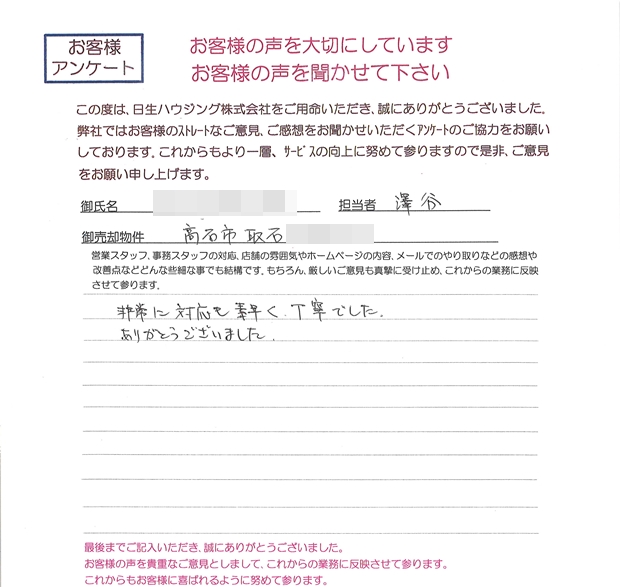 お客様
アンケート
お客様の声を大切にしています
お客様の声を聞かせて下さい
この度は、日生ハウジング株式会社をご用命いただき、誠にありがとうございました。
弊社ではお客様のストレートなご意見、ご感想をお聞かせいただくアンケートのご協力をお願い
しております。これからもより一層、サービスの向上に努めて参りますので是非、ご意見
をお願い申し上げます。
御氏名 担当者 澤谷
御売却物件 高石市取石
営業スタッフ、事務スタッフの対応、店舗の雰囲気やホームページの内容、メールでのやり取りなどの感想や
改善点などどんな些細な事でも結構です。もちろん、厳しいご意見も真摯に受け止め、これからの業務に反映
させて参ります。
非常に対応も素早く、丁寧でした。
ありがとうございました。
最後までご記入いただき、誠にありがとうございました。
お客様の声を貴重なご意見としまして、これからの業務に反映させて参ります。
これからもお客様に喜ばれるように努めて参ります。